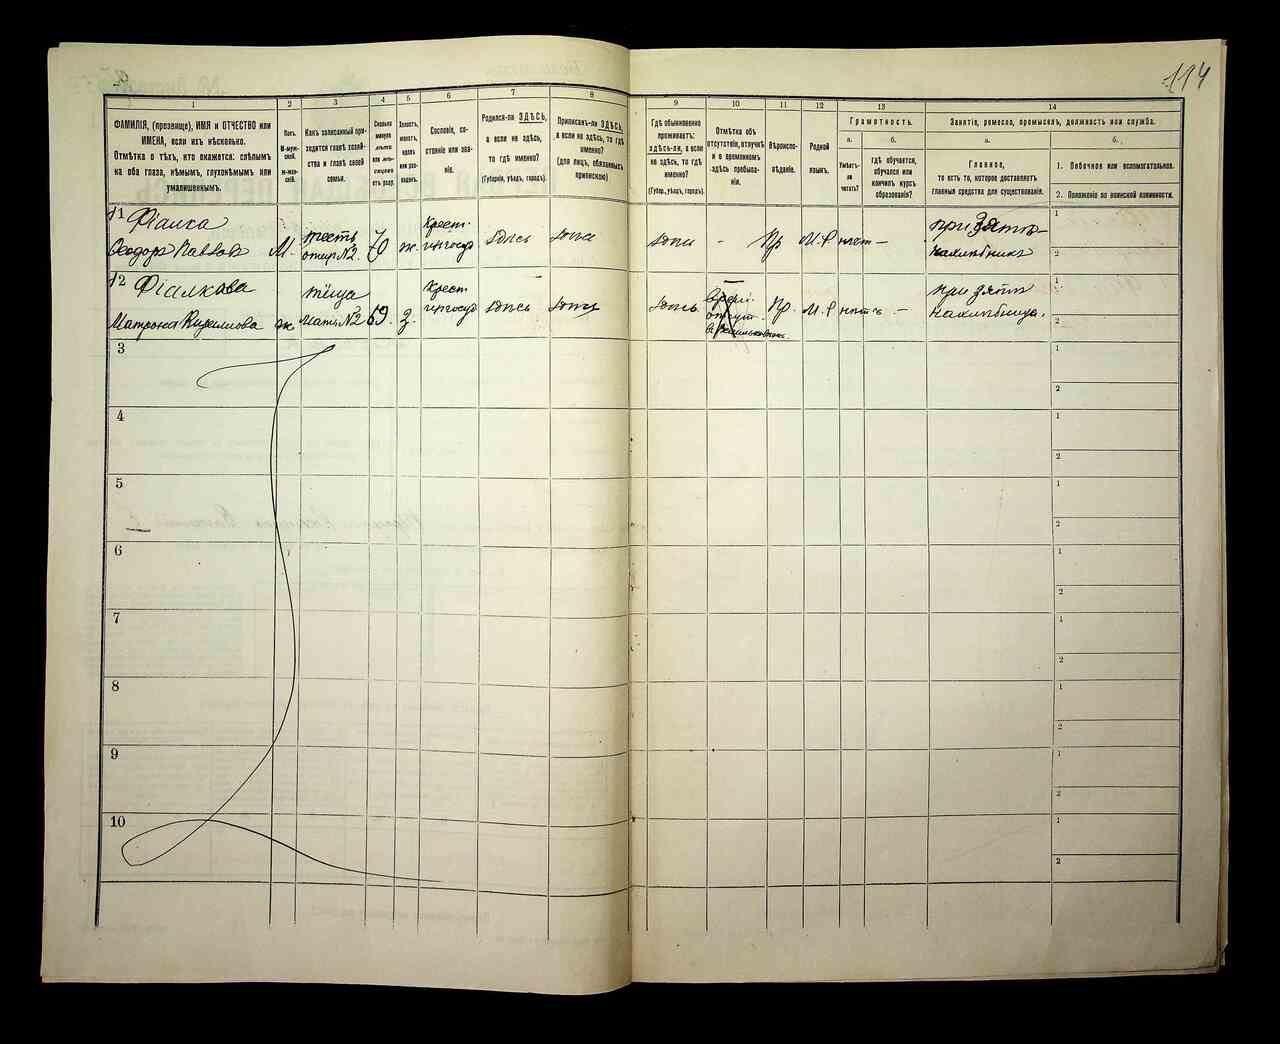 114
1
2
3
4
5
6
7
8
9
10
11
12
13
14
ФАМИЛІЯ, (прозвище), ИМЯ и ОТЧЕСТВО или
ИМЕНА, если ихъ нѣсколько.
Отмѣтка о тѣхъ, кто окажется: слѣпымъ
на оба глаза, нѣмымъ, глухонѣмымъ или
умалишеннымъ.
Полъ.
М-муж-
ской.
Ж-жен-
скій.
Какъ записанный при-
ходится главѣ хозяй-
ства и главѣ своей
семьи.
Сколько
минуло
лѣтъ
или мѣ-
сяцевъ
отъ роду.
Холостъ,
женатъ,
вдовъ
или раз-
веденъ.
Сословіе, со-
стояніе или зва-
ніе.
Родился-ли ЗДѢСЬ,
а если не здѣсь,
то гдѣ именно?
(Губернія, уѣздъ, городъ).
Приписанъ-ли ЗДѢСЬ,
а если не здѣсь, то гдѣ
именно?
(для лицъ, обязанныхъ
припискою)
Гдѣ обыкновенно
проживаетъ:
здѣсь-ли, а если
не здѣсь, то гдѣ
именно?
(Губер., уѣздъ, городъ).
Отмѣтка объ
отсутствіи, отлучкѣ
и о временномъ
здѣсь пребыва-
ніи.
Вѣроиспо-
вѣданіе.
Родной
языкъ.
Грамотность.
а.
б.
Умѣетъ-
ли
читать?
Гдѣ обучается,
обучался или
кончилъ курсъ
образованія?
Занятіе, ремесло, промыселъ, должность или служба.
а.
б.
Главное,
то есть то, которое доставляетъ
главныя средства для существованія.
1. Побочное или вспомогательное.
2. Положеніе по воинской повинности.
11 Фіалка
Ѳеодоръ Павловъ
М.
тесть
отецъ №2.
70
ж.
Крест.
здѣсь
здѣсь
здѣсь
-
Пр
М.Р
нѣтъ
-
при зятѣ
нахлѣбникъ
1
2
12 Фіалкова
Матрона
ж
тёща
Мать №2
69.
Крест
здѣсь
здѣсь
здѣсь
Пр.
М.Р
нѣтъ
-
при зятѣ
нахлѣбница.
1
2
3
1
2
4
1
2
5
1
2
6
1
2
7
1
2
8
1
2
9
1
2
10
1
2